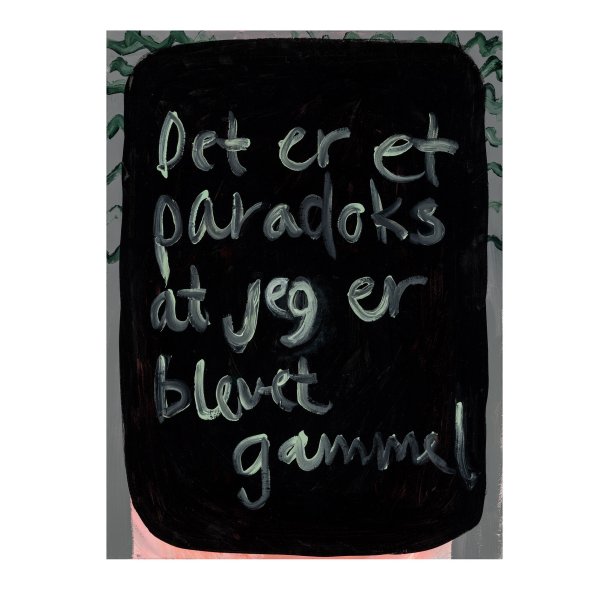 Det er et
paradoks
at jeg er
blevet
gammel